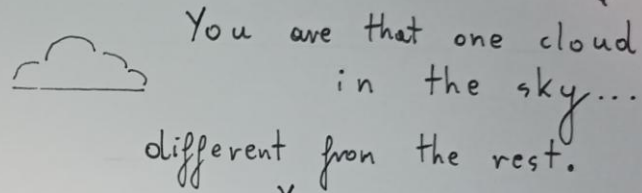 You are that one cloud
in the sky...
different fron the rest.